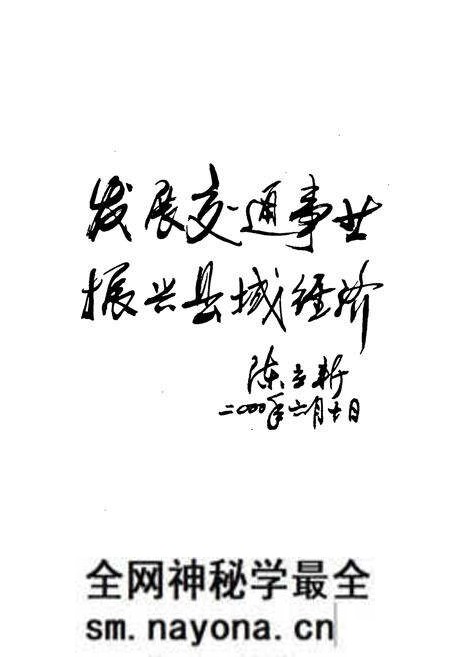 发展交通事业
振兴县域经济
陈立新
二000年六月十日
全网神秘学最全
sm.nayona.cn